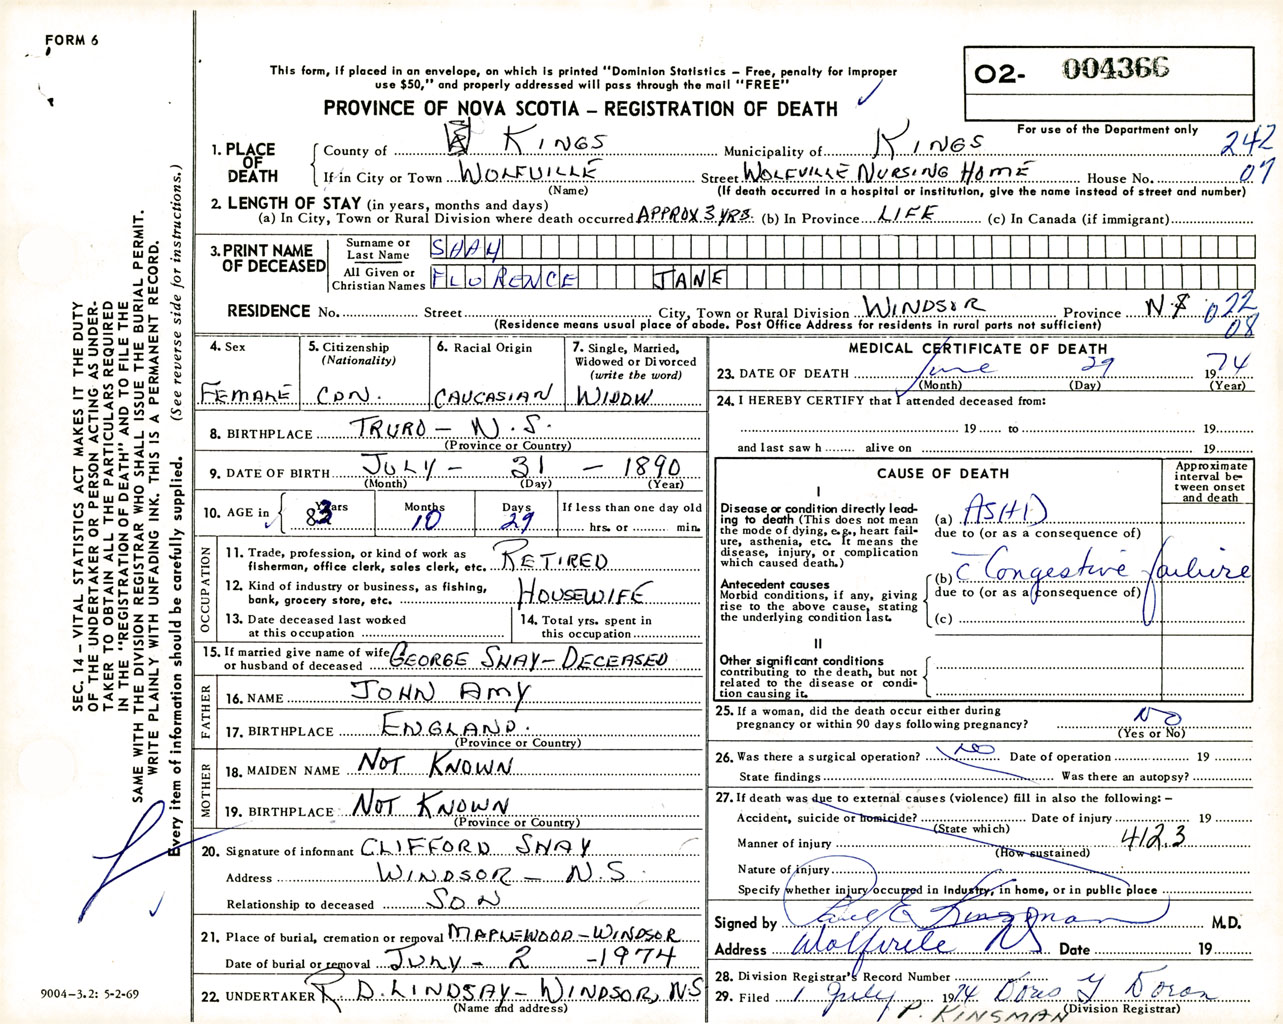 FORM 6
This form, if placed in an envelope, on which is printed "Dominion Statistics – Free, penalty for improper
use $50," and properly addressed will pass through the mail "FREE"
PROVINCE OF NOVA SCOTIA – REGISTRATION OF DEATH
O2- 004366
For use of the Department only
242
07
1. PLACE OF DEATH
County of KINGS Municipality of KINGS
If in City or Town WOLFVILLE Street WOLFVILLE NURSING HOME House No.
(Name) (If death occurred in a hospital or institution, give the name instead of street and number)
2. LENGTH OF STAY (in years, months and days)
(a) In City, Town or Rural Division where death occurred APPROX 3 YRS. (b) In Province LIFE (c) In Canada (if immigrant)
3. PRINT NAME OF DECEASED
Surname or Last Name SHAY
All Given or Christian Names FLORENCE JANE
RESIDENCE No. Street City, Town or Rural Division WINDSOR Province N.S
(Residence means usual place of abode. Post Office Address for residents in rural parts not sufficient)
022
08
4. Sex
FEMALE
5. Citizenship
(Nationality)
CDN.
6. Racial Origin
CAUCASIAN
7. Single, Married,
Widowed or Divorced
(write the word)
WIDOW
8. BIRTHPLACE TRURO – N.S.
(Province or Country)
9. DATE OF BIRTH JULY – 31 – 1890
(Month) (Day) (Year)
10. AGE in
Years 83 Months 10 Days 29
If less than one day old
hrs. or min.
OCCUPATION
11. Trade, profession, or kind of work as
fisherman, office clerk, sales clerk, etc. RETIRED
12. Kind of industry or business, as fishing,
bank, grocery store, etc. HOUSEWIFE
13. Date deceased last worked
at this occupation
14. Total yrs. spent in
this occupation
15. If married give name of wife
or husband of deceased GEORGE SHAY – DECEASED
FATHER
16. NAME JOHN AMY
17. BIRTHPLACE ENGLAND.
(Province or Country)
MOTHER
18. MAIDEN NAME NOT KNOWN
19. BIRTHPLACE NOT KNOWN
(Province or Country)
20. Signature of informant CLIFFORD SHAY
Address WINDSOR – N.S
Relationship to deceased SON
21. Place of burial, cremation or removal MAPLEWOOD – WINDSOR
Date of burial or removal JULY – 2 – 1974
22. UNDERTAKER R. D. LINDSAY – WINDSOR, NS
(Name and address)
MEDICAL CERTIFICATE OF DEATH
23. DATE OF DEATH June 29 1974
(Month) (Day) (Year)
24. I HEREBY CERTIFY that I attended deceased from:
19 to 19
and last saw h alive on 19
CAUSE OF DEATH
Approximate
interval be-
tween onset
and death
I
Disease or condition directly lead-
ing to death (This does not mean
the mode of dying, e.g., heart fail-
ure, asthenia, etc. It means the
disease, injury, or complication
which caused death.)
(a) ASHD
due to (or as a consequence of)
Antecedent causes
Morbid conditions, if any, giving
rise to the above cause, stating
the underlying condition last.
(b) c̄ Congestive failure
due to (or as a consequence of)
(c)
II
Other significant conditions
contributing to the death, but not
related to the disease or condi-
tion causing it.
25. If a woman, did the death occur either during
pregnancy or within 90 days following pregnancy? NO
(Yes or No)
26. Was there a surgical operation? NO Date of operation 19
State findings Was there an autopsy?
27. If death was due to external causes (violence) fill in also the following: –
Accident, suicide or homicide? Date of injury 19
(State which)
Manner of injury 412.3
(How sustained)
Nature of injury
Specify whether injury occurred in industry, in home, or in public place
Signed by Paul E Kingsman M.D.
Address Wolfville NS Date 19
28. Division Registrar's Record Number
29. Filed 1 July 1974 Doris Y Doran
(Division Registrar)
P. KINSMAN
SEC. 14 – VITAL STATISTICS ACT MAKES IT THE DUTY
OF THE UNDERTAKER OR PERSON ACTING AS UNDER-
TAKER TO OBTAIN ALL THE PARTICULARS REQUIRED
IN THE "REGISTRATION OF DEATH" AND TO FILE THE
SAME WITH THE DIVISION REGISTRAR WHO SHALL ISSUE THE BURIAL PERMIT.
WRITE PLAINLY WITH UNFADING INK. THIS IS A PERMANENT RECORD.
Every item of information should be carefully supplied. (See reverse side for instructions.)
9004-3.2: 5-2-69